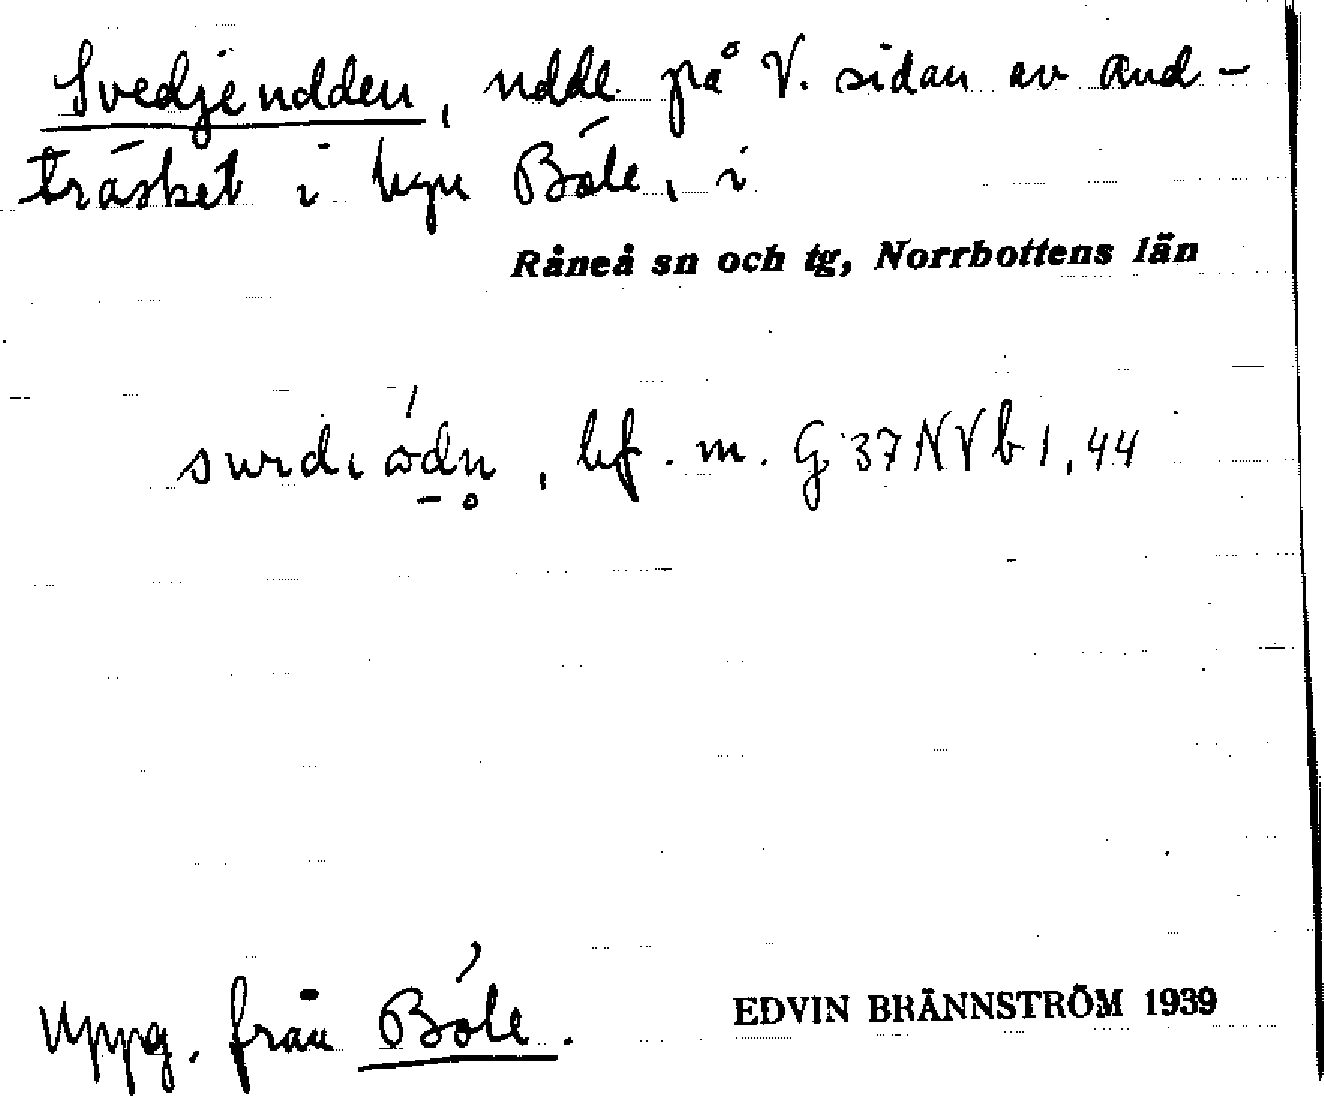 Svedjeudden, udde på V. sidan av And-
träsket i byn Böle, i
Råneå sn och tg, Norrbottens län
bf. m. G 37 NVb 1, 44
Uppg. från Böle.
EDVIN BRÄNNSTRÖM 1939